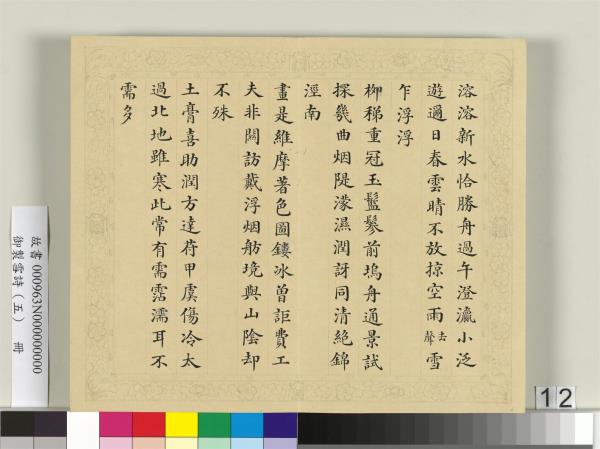 溶溶新水恰勝舟過午澄瀛小泛
遊過日春雲晴不放掠空雨去聲雪
乍浮浮
柳稊重冠玉鬖前塢舟通景試
探幾曲烟隄濛濕潤訝同清絕錦
溼南
畫是維摩著色圖鏤冰曾詎費工
夫非關訪戴浮烟舫境與山陰却
不殊
土膏喜助潤方達荷甲虞傷冷太
過北地雖寒此常有需霑濡耳不
需多
故書 000963N000000000
御製雪詩（五） 冊
12